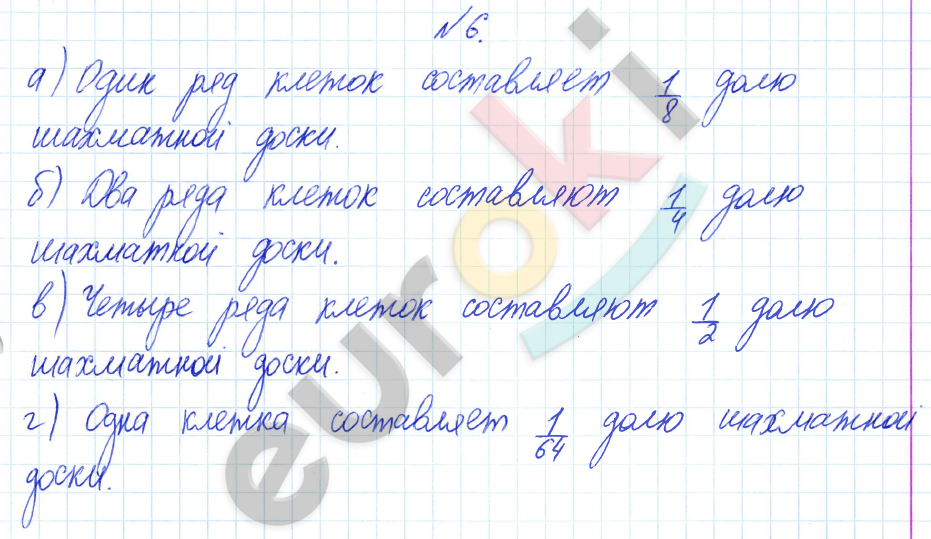 №6.
а) Один ряд клеток составляет 1/8 долю
шахматной доски.
б) Два ряда клеток составляют 1/4 долю
шахматной доски.
в) Четыре ряда клеток составляют 1/2 долю
шахматной доски.
г) Одна клетка составляет 1/64 долю шахматной
доски.
euroki